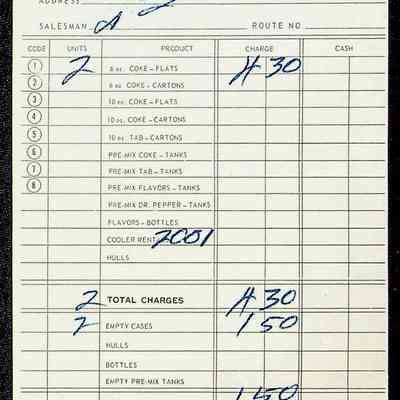 ADDRESS
SALESMAN ROUTE NO
CODE UNITS PRODUCT CHARGE CASH
1 2 6 oz. COKE – FLATS 4 30
2 6 oz. COKE – CARTONS
3 10 oz. COKE – FLATS
4 10 oz. COKE – CARTONS
5 10 oz. TAB – CARTONS
6 PRE-MIX COKE – TANKS
7 PRE-MIX TAB – TANKS
8 PRE-MIX FLAVORS – TANKS
PRE-MIX DR. PEPPER – TANKS
FLAVORS – BOTTLES
COOLER RENT 2001
HULLS
2 TOTAL CHARGES 4 30
2 EMPTY CASES 1 50
HULLS
BOTTLES
EMPTY PRE-MIX TANKS
1 50